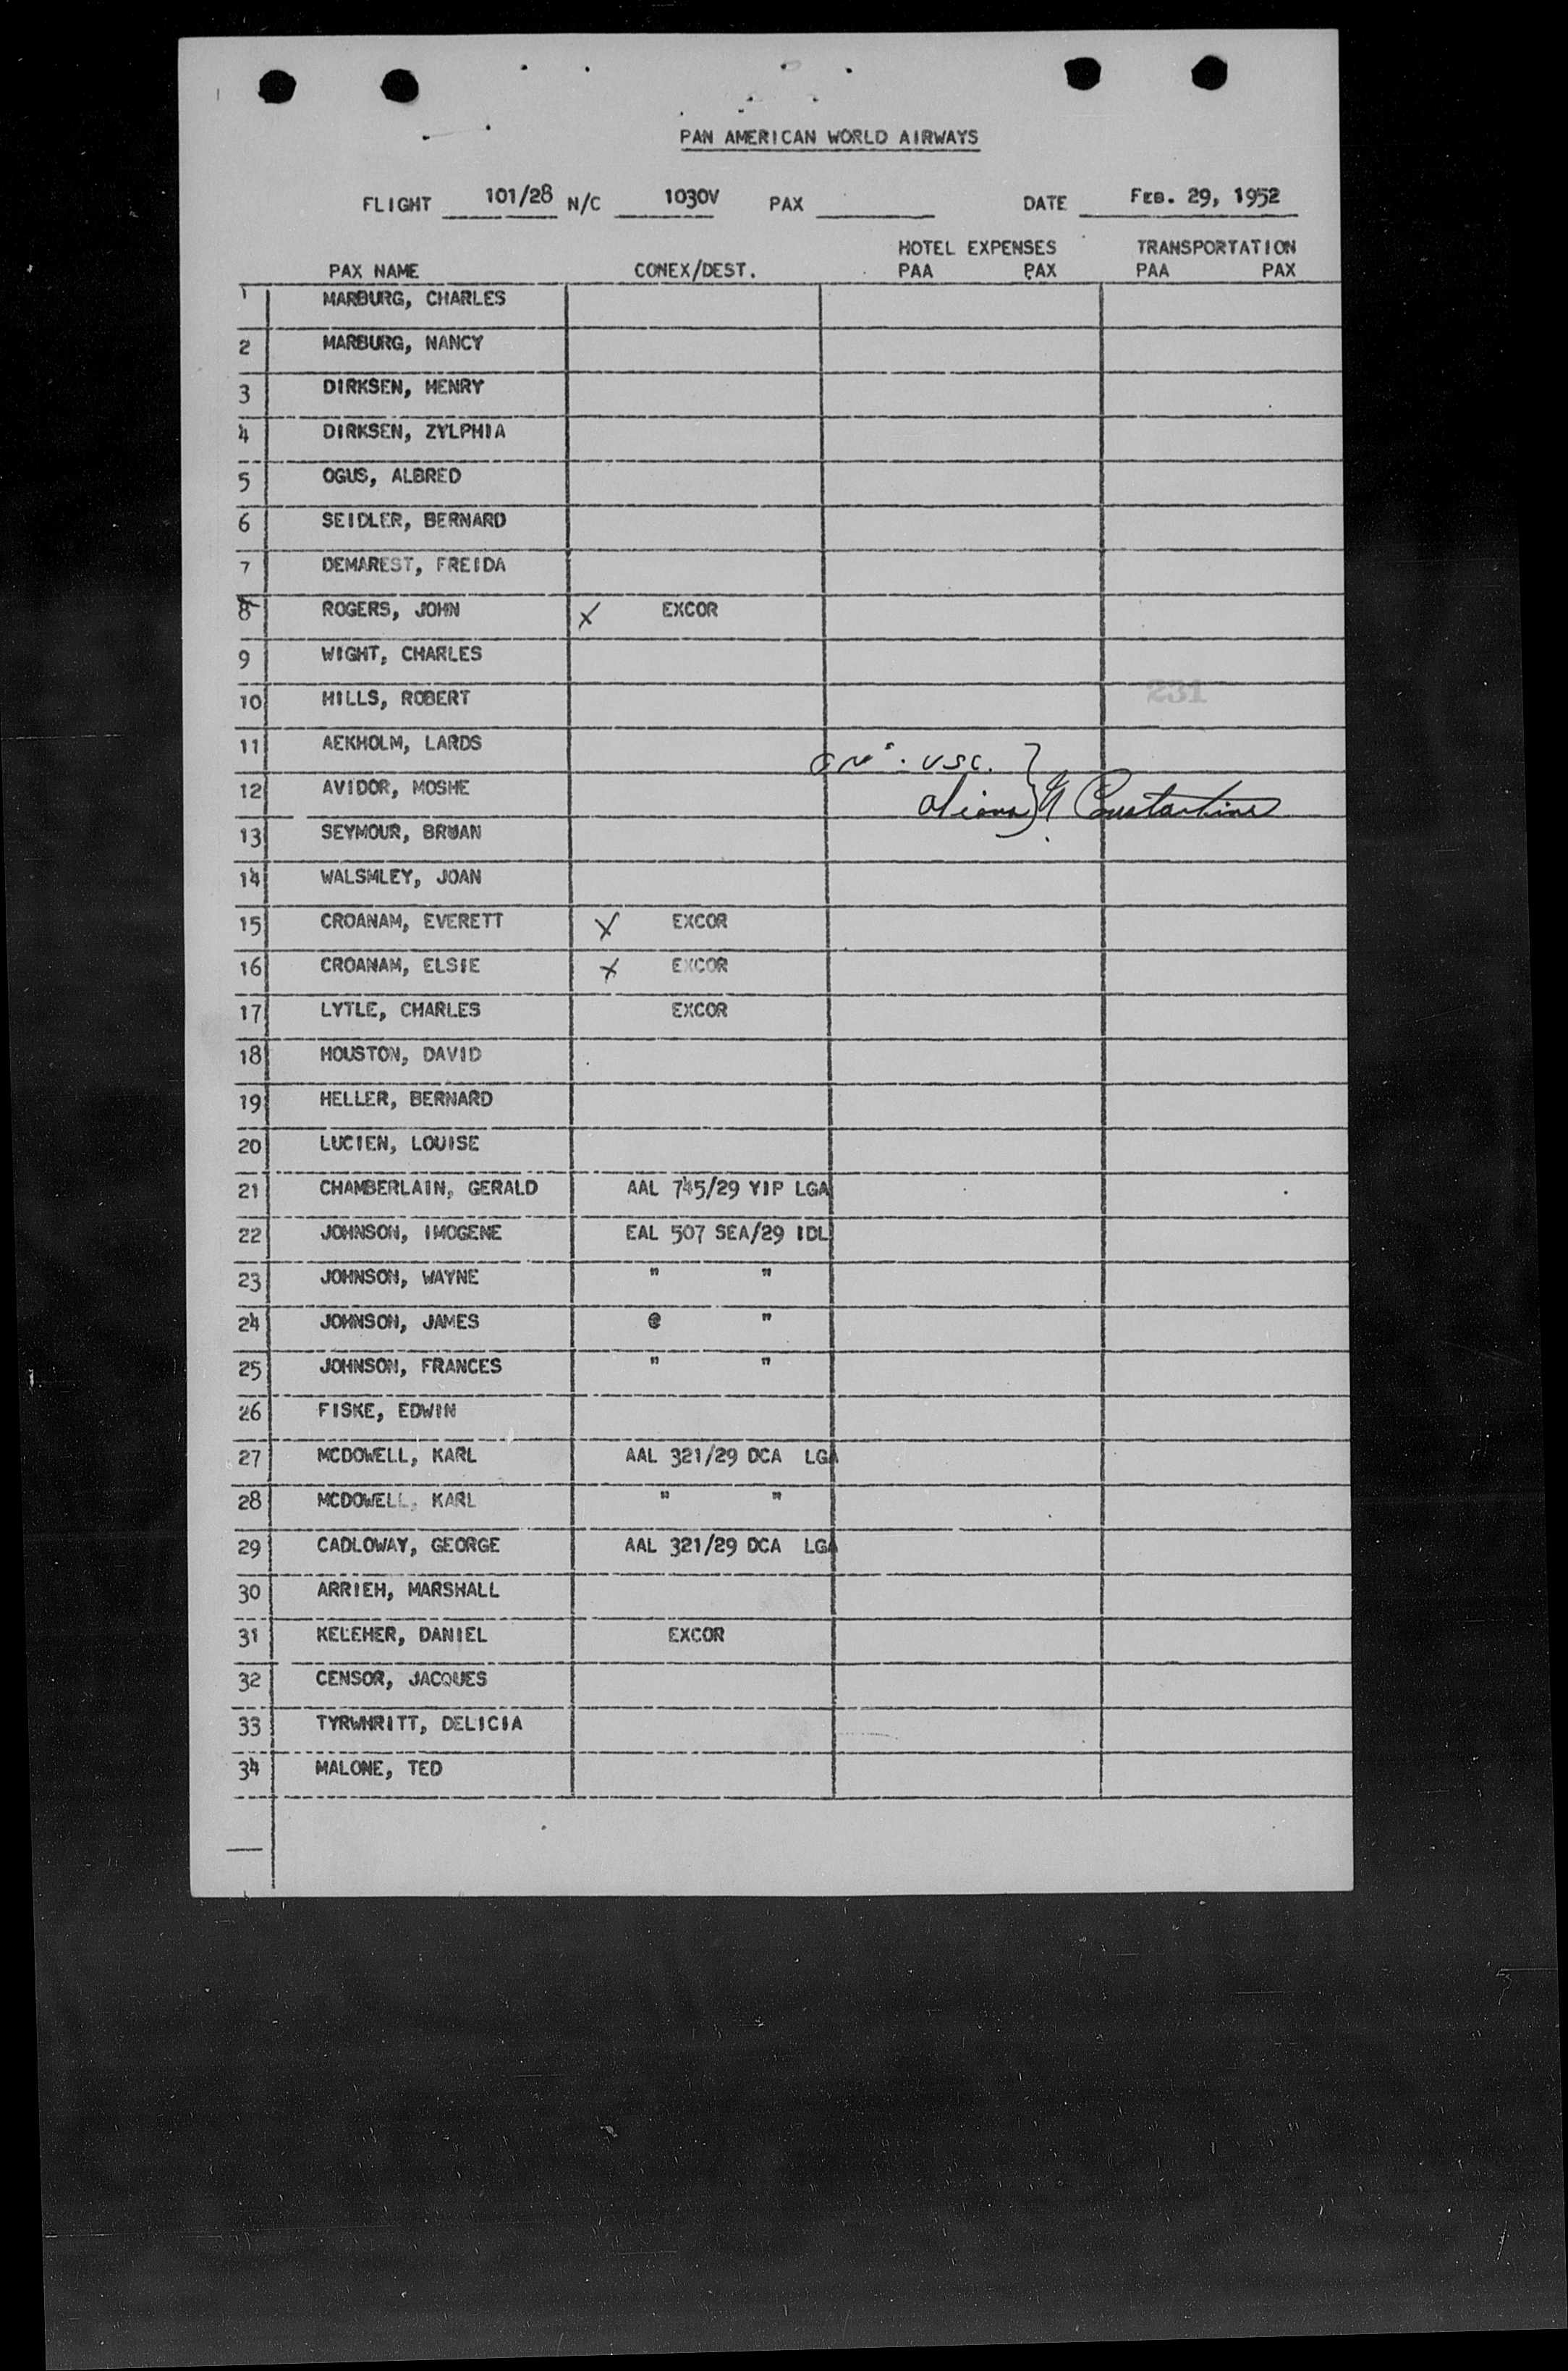 PAN AMERICAN WORLD AIRWAYS
FLIGHT 101/28 N/C 1030V PAX DATE FEB. 29, 1952
HOTEL EXPENSES TRANSPORTATION
PAX NAME CONEX/DEST. PAA PAX PAA PAX
1 MARBURG, CHARLES
2 MARBURG, NANCY
3 DIRKSEN, HENRY
4 DIRKSEN, ZYLPHIA
5 OGUS, ALBRED
6 SEIDLER, BERNARD
7 DEMAREST, FREIDA
8 ROGERS, JOHN X EXCOR
9 WIGHT, CHARLES
10 HILLS, ROBERT 231
11 AEKHOLM, LARDS
USC.
12 AVIDOR, MOSHE
aliens Constantine
13 SEYMOUR, BRUAN
14 WALSMLEY, JOAN
15 CROANAM, EVERETT X EXCOR
16 CROANAM, ELSIE X EXCOR
17 LYTLE, CHARLES EXCOR
18 HOUSTON, DAVID
19 HELLER, BERNARD
20 LUCIEN, LOUISE
21 CHAMBERLAIN, GERALD AAL 745/29 YIP LGA
22 JOHNSON, IMOGENE EAL 507 SEA/29 IDL
23 JOHNSON, WAYNE " "
24 JOHNSON, JAMES @ "
25 JOHNSON, FRANCES " "
26 FISKE, EDWIN
27 MCDOWELL, KARL AAL 321/29 DCA LGA
28 MCDOWELL, KARL " "
29 CADLOWAY, GEORGE AAL 321/29 DCA LGA
30 ARRIEH, MARSHALL
31 KELEHER, DANIEL EXCOR
32 CENSOR, JACQUES
33 TYRWHRITT, DELICIA
34 MALONE, TED